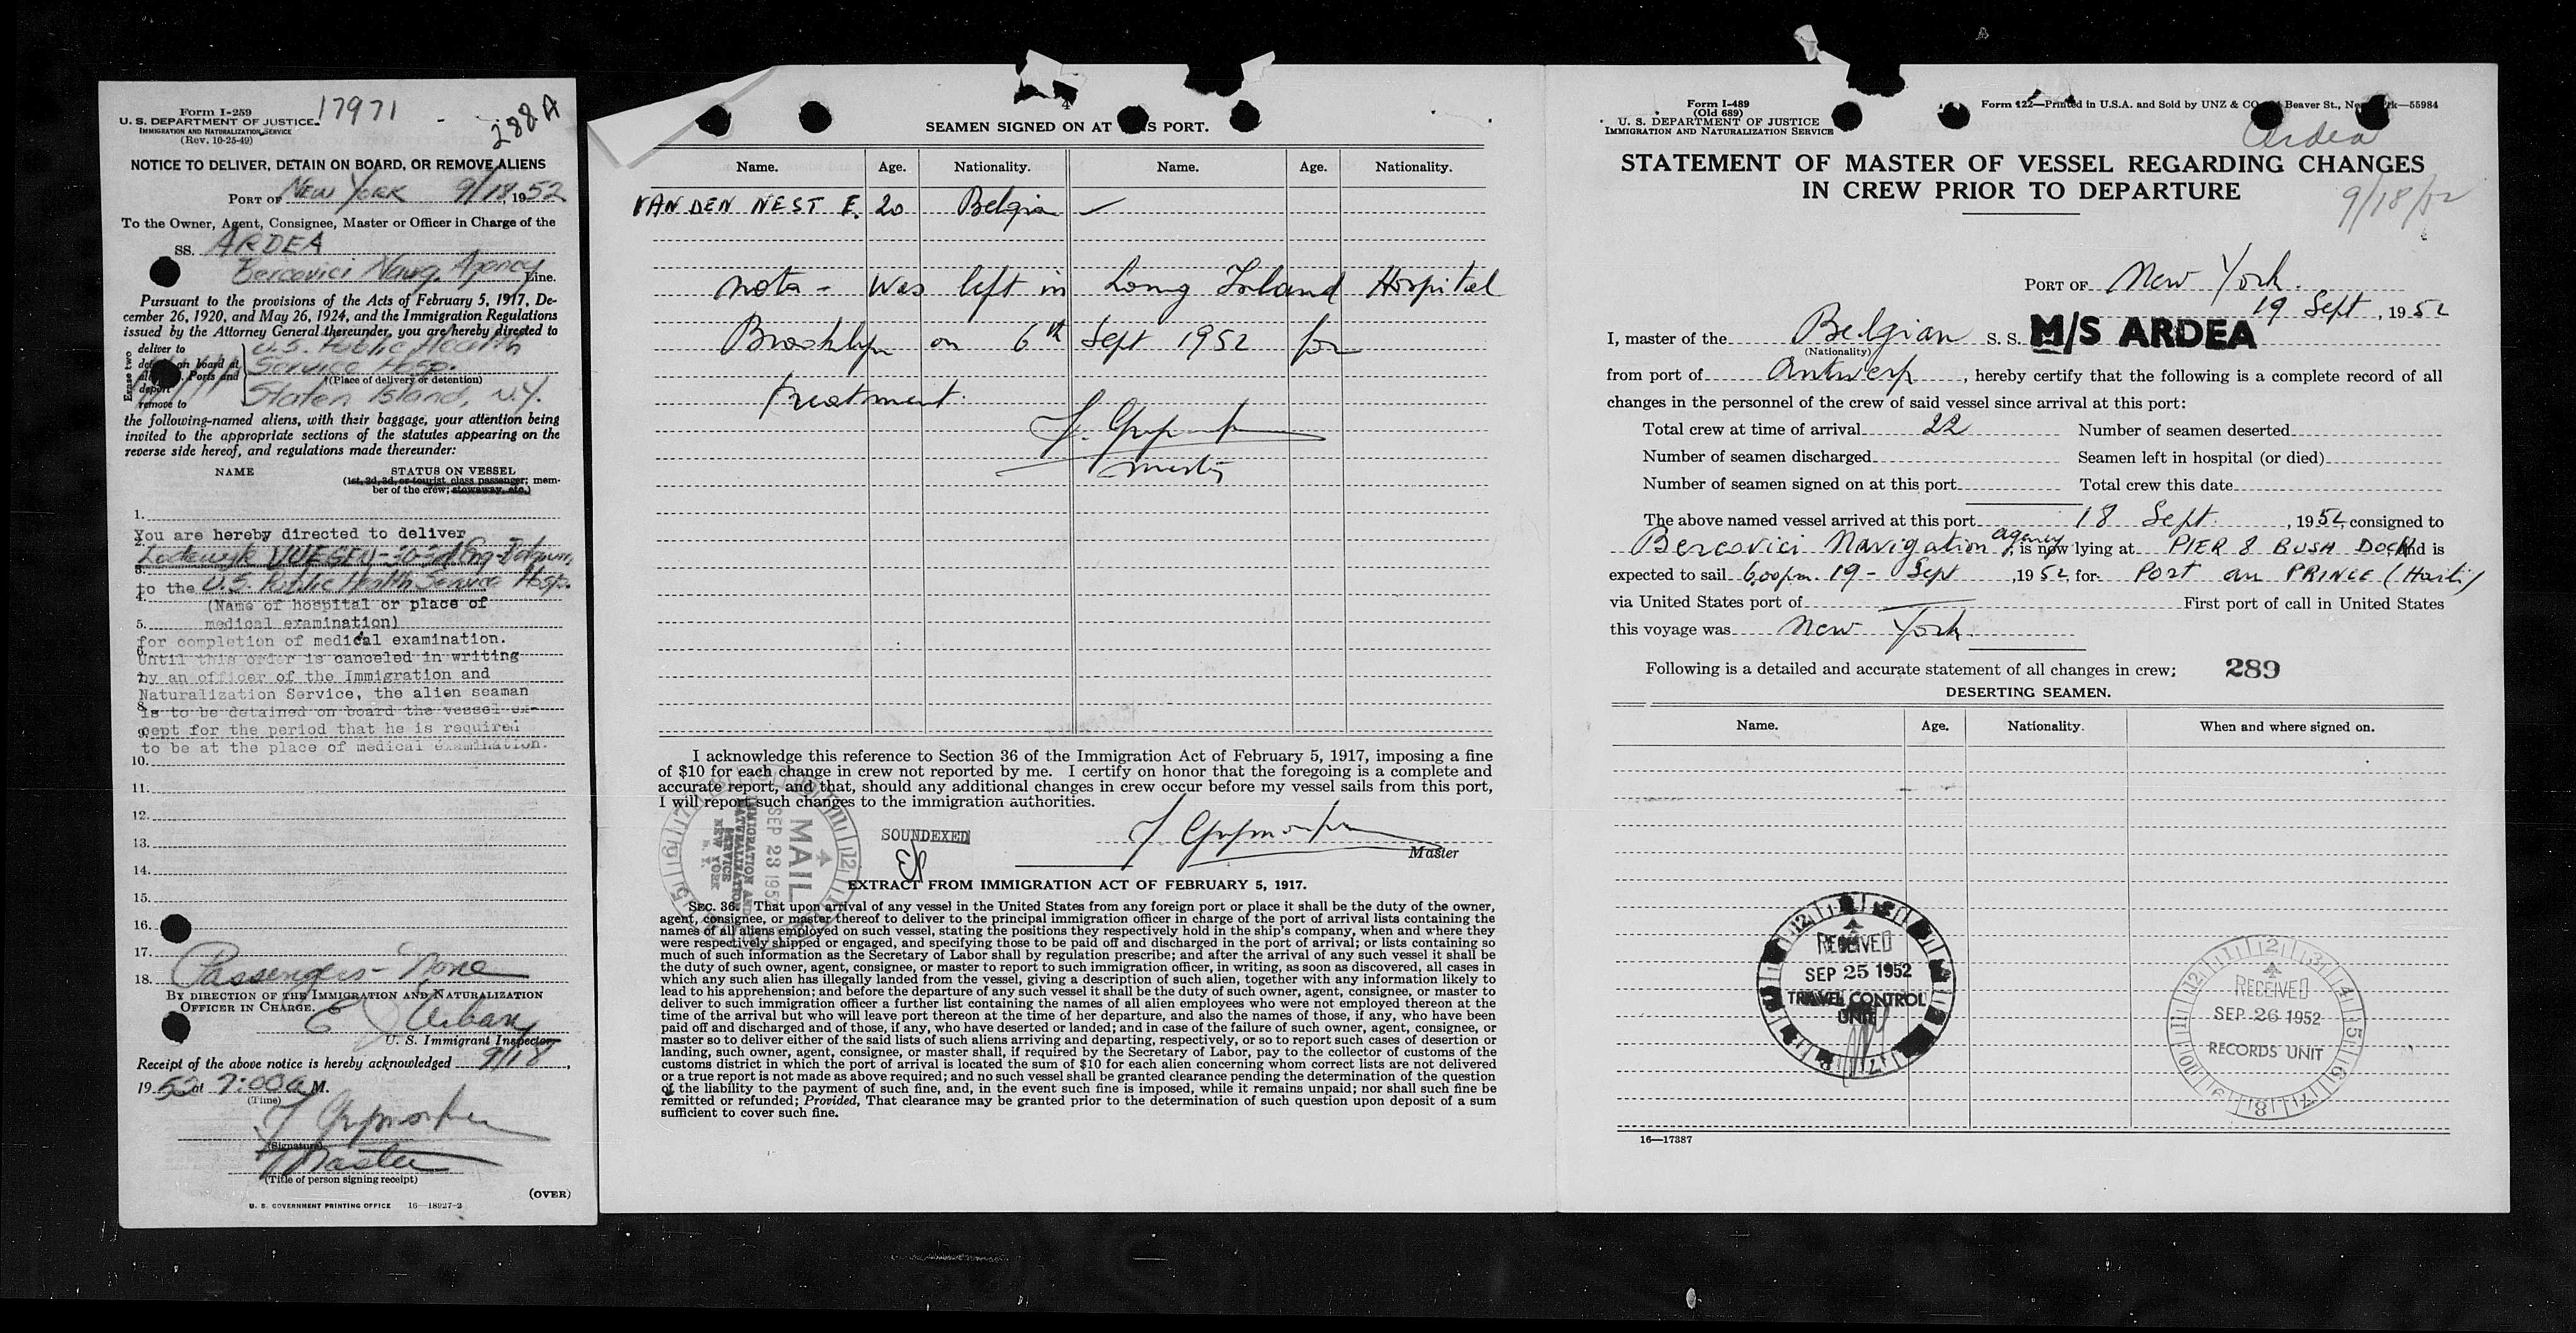 Form I-259
U. S. DEPARTMENT OF JUSTICE
IMMIGRATION AND NATURALIZATION SERVICE
(Rev. 10-25-49)
17971
288A
NOTICE TO DELIVER, DETAIN ON BOARD, OR REMOVE ALIENS
PORT OF NEW YORK 9/18, 1952
To the Owner, Agent, Consignee, Master or Officer in Charge of the
SS. ARDEA
Bercovici Navig. Agency Line.
Pursuant to the provisions of the Acts of February 5, 1917, De-
cember 26, 1920, and May 26, 1924, and the Immigration Regulations
issued by the Attorney General thereunder, you are hereby directed to
Erase two
deliver to
on board at
Ports and
deport
remove to
U.S. Public Health
Service Hosp.
(Place of delivery or detention)
Staten Island, N.Y.
the following-named aliens, with their baggage, your attention being
invited to the appropriate sections of the statutes appearing on the
reverse side hereof, and regulations made thereunder:
NAME STATUS ON VESSEL
(1st, 2d, 3d, or tourist class passenger; mem-
ber of the crew; stowaway, etc.)
1.
You are hereby directed to deliver
2.
3.
to the U.S. Public Health Service Hosp.
4. (Name of hospital or place of
5. medical examination)
for completion of medical examination.
6.
Until this order is canceled in writing
7. by an officer of the Immigration and
Naturalization Service, the alien seaman
8.
is to be detained on board the vessel ex-
9. cept for the period that he is required
to be at the place of medical examination.
10.
11.
12.
13.
14.
15.
16.
17.
18. Passengers - None
BY DIRECTION OF THE IMMIGRATION AND NATURALIZATION
OFFICER IN CHARGE.
U. S. Immigrant Inspector
Receipt of the above notice is hereby acknowledged 9/18,
1952 at 7:00 a M.
(Time)
(Signature)
Master
(Title of person signing receipt)
(OVER)
U. S. GOVERNMENT PRINTING OFFICE 16—18927-2
4
SEAMEN SIGNED ON AT THIS PORT.
Name. Age. Nationality. Name. Age. Nationality.
VAN DEN NEST F. 20 Belgian
nota - Was left in Long Island Hospital
Brooklyn on 6th Sept 1952 for
treatment.
master
I acknowledge this reference to Section 36 of the Immigration Act of February 5, 1917, imposing a fine
of $10 for each change in crew not reported by me. I certify on honor that the foregoing is a complete and
accurate report, and that, should any additional changes in crew occur before my vessel sails from this port,
I will report such changes to the immigration authorities.
Master
SOUNDEXED
MAIL
SEP 23 1952
IMMIGRATION AND
NATURALIZATION
SERVICE
NEW YORK
N. Y.
EXTRACT FROM IMMIGRATION ACT OF FEBRUARY 5, 1917.
SEC. 36. That upon arrival of any vessel in the United States from any foreign port or place it shall be the duty of the owner,
agent, consignee, or master thereof to deliver to the principal immigration officer in charge of the port of arrival lists containing the
names of all aliens employed on such vessel, stating the positions they respectively hold in the ship's company, when and where they
were respectively shipped or engaged, and specifying those to be paid off and discharged in the port of arrival; or lists containing so
much of such information as the Secretary of Labor shall by regulation prescribe; and after the arrival of any such vessel it shall be
the duty of such owner, agent, consignee, or master to report to such immigration officer, in writing, as soon as discovered, all cases in
which any such alien has illegally landed from the vessel, giving a description of such alien, together with any information likely to
lead to his apprehension; and before the departure of any such vessel it shall be the duty of such owner, agent, consignee, or master to
deliver to such immigration officer a further list containing the names of all alien employees who were not employed thereon at the
time of the arrival but who will leave port thereon at the time of her departure, and also the names of those, if any, who have been
paid off and discharged and of those, if any, who have deserted or landed; and in case of the failure of such owner, agent, consignee, or
master so to deliver either of the said lists of such aliens arriving and departing, respectively, or so to report such cases of desertion or
landing, such owner, agent, consignee, or master shall, if required by the Secretary of Labor, pay to the collector of customs of the
customs district in which the port of arrival is located the sum of $10 for each alien concerning whom correct lists are not delivered
or a true report is not made as above required; and no such vessel shall be granted clearance pending the determination of the question
of the liability to the payment of such fine, and, in the event such fine is imposed, while it remains unpaid; nor shall such fine be
remitted or refunded; Provided, That clearance may be granted prior to the determination of such question upon deposit of a sum
sufficient to cover such fine.
Form I-489
(Old 689)
U. S. DEPARTMENT OF JUSTICE
IMMIGRATION AND NATURALIZATION SERVICE
Form 122—Printed in U.S.A. and Sold by UNZ & CO., Beaver St., New York—55984
Ardea
STATEMENT OF MASTER OF VESSEL REGARDING CHANGES
IN CREW PRIOR TO DEPARTURE
9/18/52
PORT OF New York.
19 Sept, 1952
I, master of the Belgian S. S. M/S ARDEA
(Nationality)
from port of Antwerp, hereby certify that the following is a complete record of all
changes in the personnel of the crew of said vessel since arrival at this port:
Total crew at time of arrival 22 Number of seamen deserted
Number of seamen discharged Seamen left in hospital (or died)
Number of seamen signed on at this port Total crew this date
The above named vessel arrived at this port 18 Sept., 1952, consigned to
Bercovici Navigation agency, is now lying at PIER 8 BUSH DOCK and is
expected to sail 6.00 p.m. 19 - Sept, 1952, for PORT au PRINCE (Haiti)
via United States port of First port of call in United States
this voyage was New York.
Following is a detailed and accurate statement of all changes in crew: 289
DESERTING SEAMEN.
Name. Age. Nationality. When and where signed on.
RECEIVED
SEP 25 1952
TRAVEL CONTROL
UNIT
RECEIVED
SEP 26 1952
RECORDS UNIT
16—17387